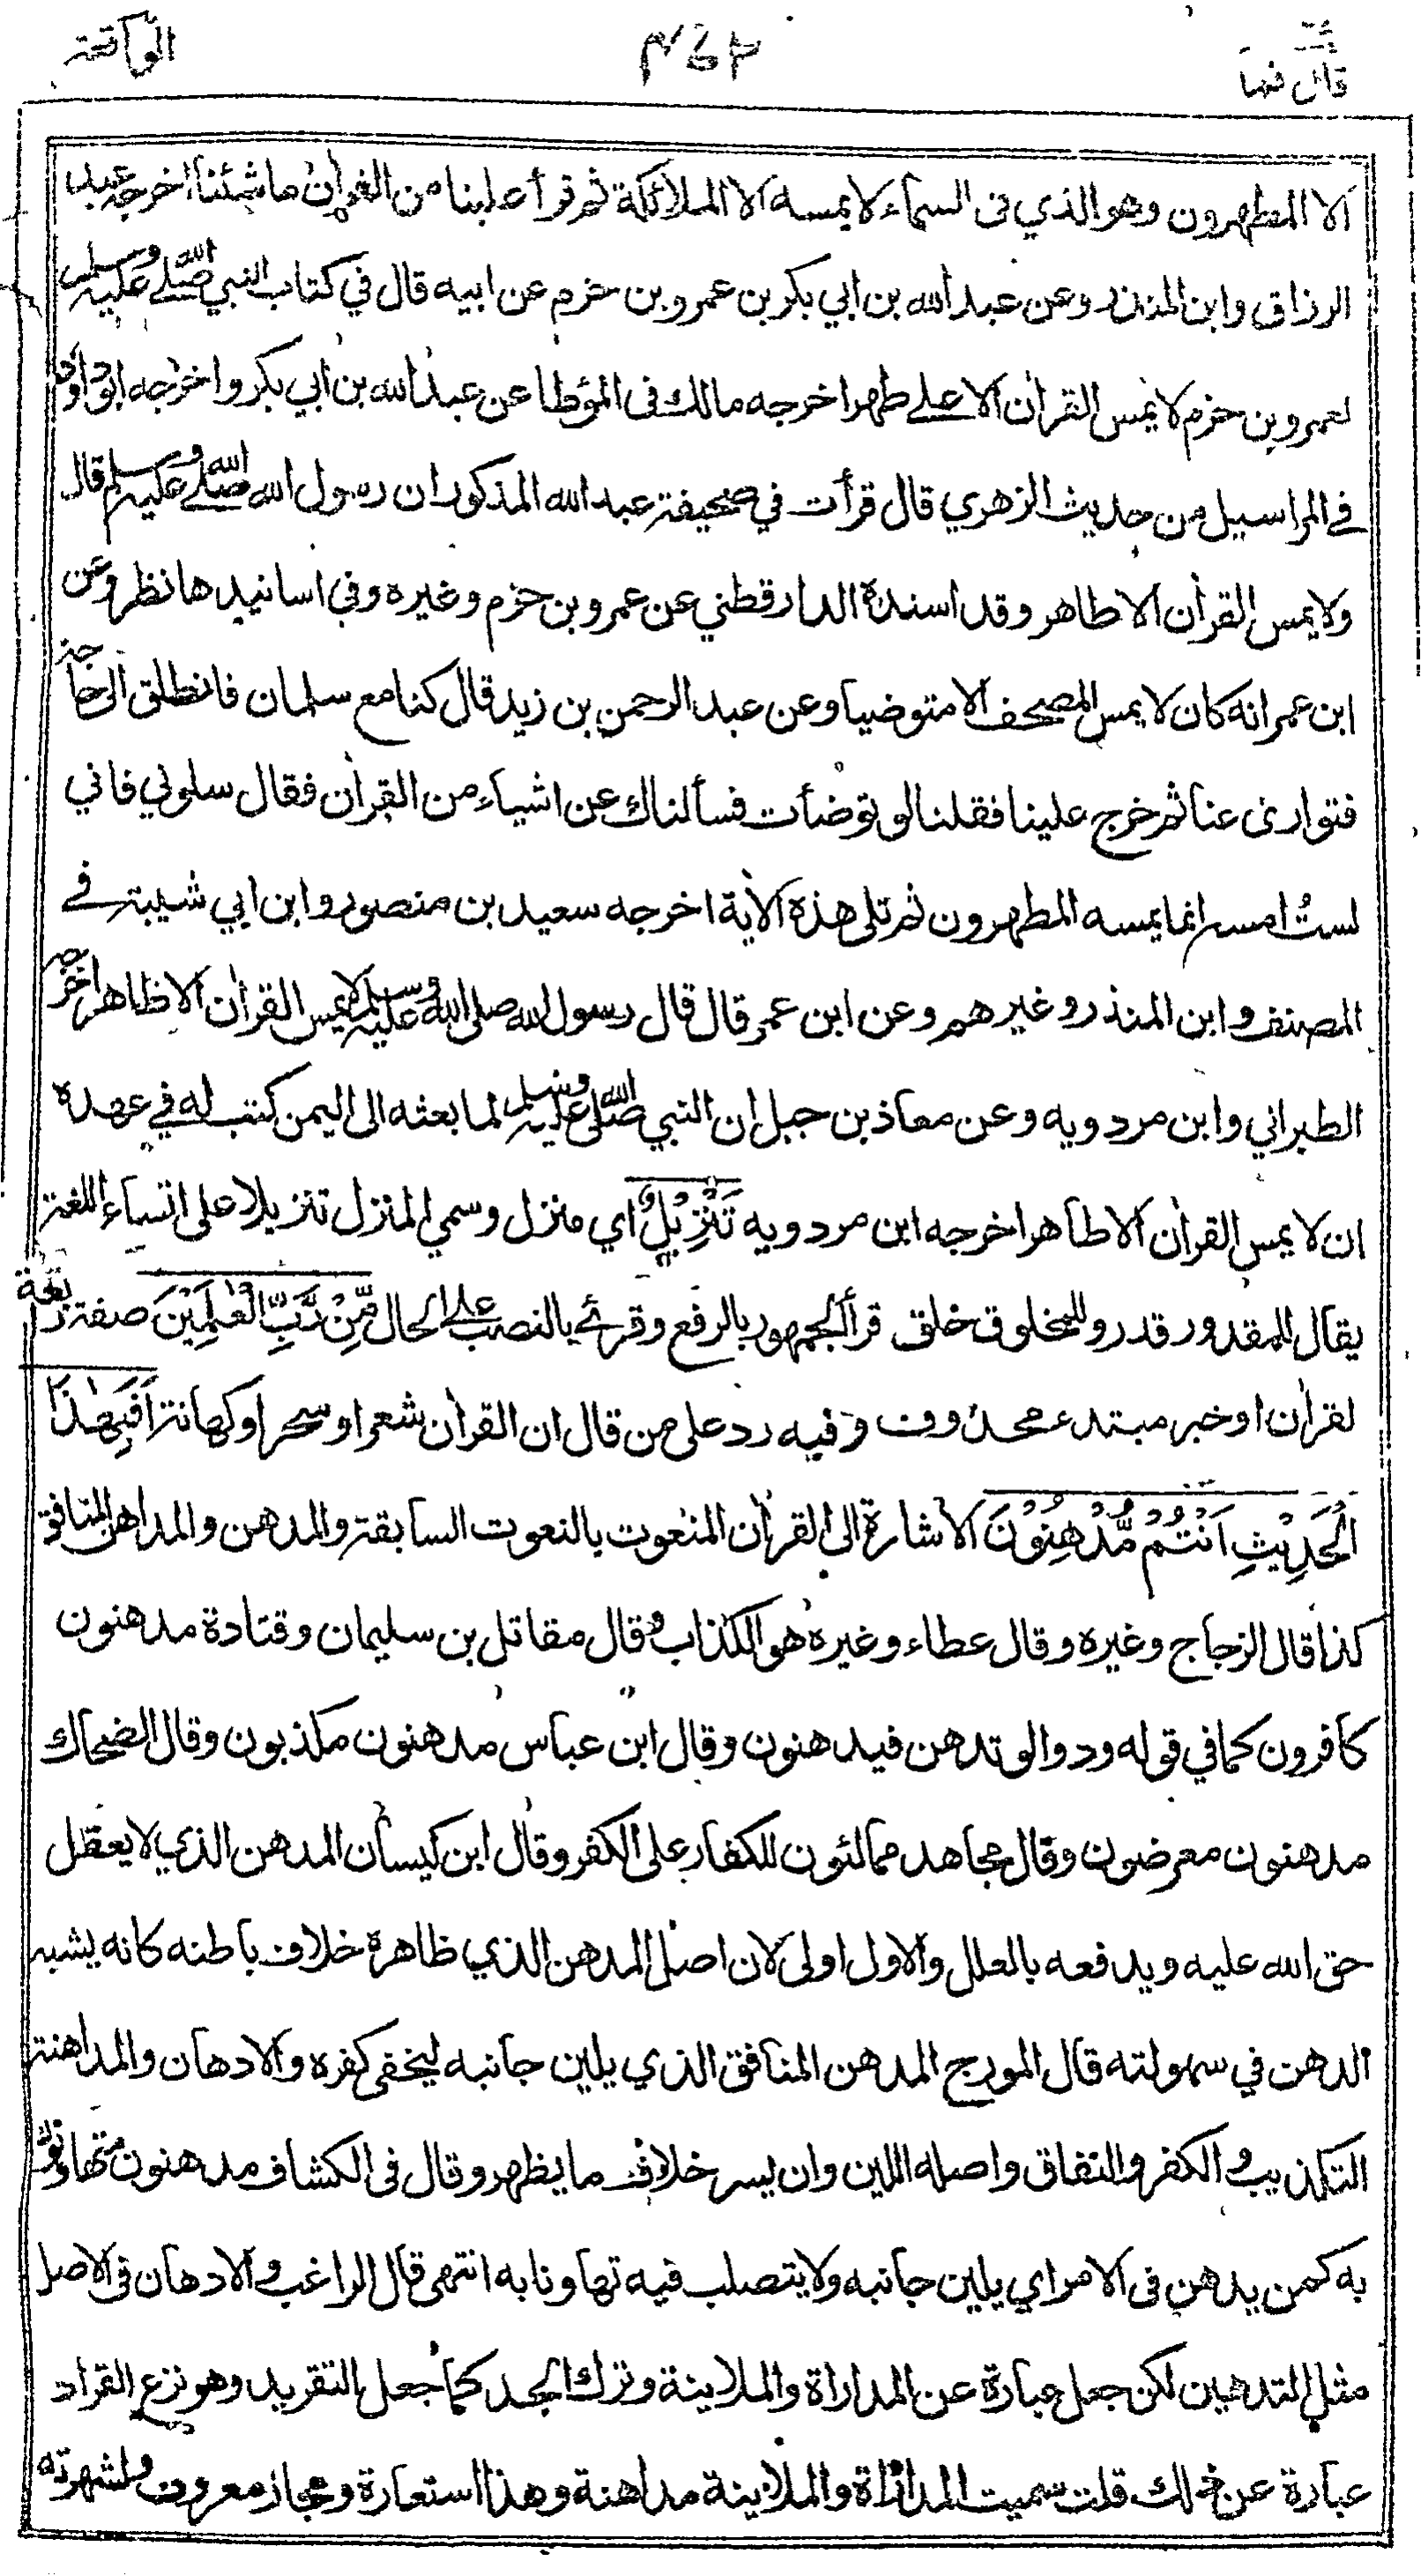 قال فيما
٢٤٣
الواقعة
الا المطهرون وهو الذي فى السماء لا يمسه الا الملائكة ثم قرأ علينا من القرأن ما شئنا اخرجه عبد
الرزاق وابن المنذر وعن عبد الله بن ابي بكر بن عمرو بن حزم عن ابيه قال في كتاب النبي صلى الله عليه وسلم
لعمرو بن حزم لا يمس القرأن الا على طهر اخرجه مالك فى المؤطا عن عبد الله بن أبي بكر واخرجه ابوداود
في المراسيل من حديث الزهري قال قرأت في صحيفة عبد الله المذكور ان رسول الله صلى الله عليه وسلم قال
ولا يمس القرأن الا طاهر وقد اسنده الدارقطني عن عمرو بن حزم وغيره وفي اسانيدها نظر وعن
ابن عمر انه كان لا يمس المصحف الا متوضيا وعن عبد الرحمن بن زيد قال كنا مع سلمان فانطلق الى حاجة
فتوارى عنا ثم خرج علينا فقلنا لو توضأت فسألناك عن اشياء من القرأن فقال سلوني فاني
لستُ امسه انما يمسه المطهرون ثم تلى هذه الأية اخرجه سعيد بن منصور وابن ابي شيبة في
المصنف وابن المنذر وغيرهم وعن ابن عمر قال قال رسول الله صلى الله عليه وسلم لا يمس القرأن الا طاهر اخرجه
الطبراني وابن مردويه وعن معاذ بن جبل ان النبي صلى الله عليه وسلم لما بعثه الى اليمن كتب له في عهده
ان لا يمس القرأن الا طاهر اخرجه ابن مردويه تَنْزِيْلٌ اي منزل وسمي المنزل تنزيلا على اتساء اللغة
يقال للمقدور قدر وللمخلوق خلق قرأ الجمهور بالرفع وقرئ بالنصب على الحال مِّنْ رَّبِّ الْعٰلَمِيْنَ صفة رابعة
لقرأن او خبر مبتدء محذوف وفيه رد على من قال ان القرأن شعر او سحر او كهانة اَفَبِهٰذَا
الْحَدِيْثِ اَنْتُمْ مُّدْهِنُوْنَ الاشارة الى القرأن المنعوت بالنعوت السابقة والمدهن والمداهن المنافق
كذا قال الزجاج وغيره وقال عطاء وغيره هو الكذاب وقال مقاتل بن سليمان وقتادة مدهنون
كافرون كما في قوله ودوا لو تدهن فيدهنون وقال ابن عباس مدهنون مكذبون وقال الضحاك
مدهنون معرضون وقال مجاهد ممالئون للكفار على الكفر وقال ابن كيسان المدهن الذي لا يعقل
حق الله عليه ويدفعه بالعلل والاول اولى لان اصل المدهن الذي ظاهرة خلاف باطنه كانه يشبه
الدهن في سهولته قال المورج المدهن المنافق الذي يلين جانبه ليخفى كفره والادهان والمداهنة
التكذيب والكفر والنفاق واصله اللين وان يسر خلاف ما يظهر وقال فى الكشاف مدهنون متهاونون
به كمن يدهن فى الامر اي يلين جانبه ولا يتصلب فيه تهاونا به انتهى قال الراغب والادهان فى الاصل
مثل التدهين لكن جعل عبارة عن المداراة والملاينة وترك الجد كما جعل التقريد وهو نزع القراد
عبارة عن ذلك قلت سميت المداراة والملاينة مداهنة وهذا استعارة ومجاز معروف ولشهرته